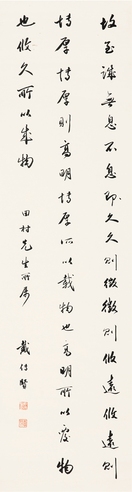 故至誠無息不息則久久則徵徵則悠遠悠遠則
博厚博厚則高明博厚所以載物也高明所以覆物
也悠久所以成物
田村先生雅屬
戴傳賢